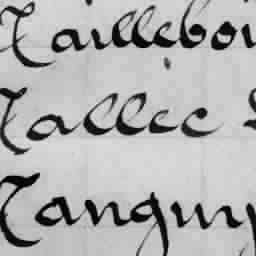 Tailleboi
Tallec
Tanguy